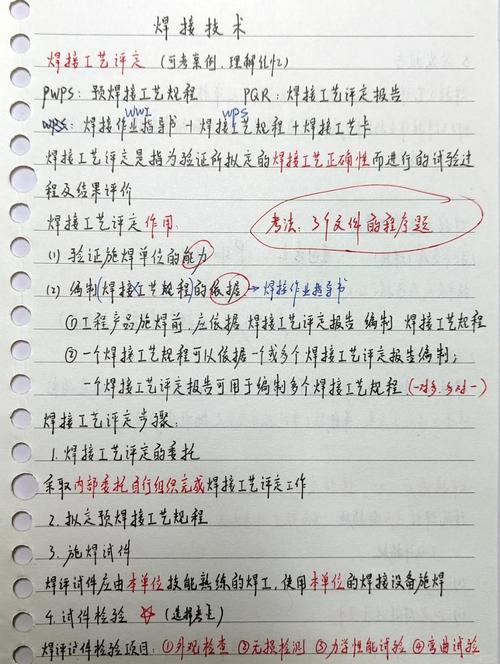 焊接技术
焊接工艺评定 (可考案例,理解记忆)
PWPS:预焊接工艺规程 PQR:焊接工艺评定报告
WWI WPS
焊接作业指导书+焊接工艺规程+焊接工艺卡
焊接工艺评定是指为验证所拟定的焊接工艺正确性而进行的试验过
程及结果评价
焊接工艺评定作用:
考法:3个文件的程序题
(1) 验证施焊单位的能力
(2) 编制(焊接工艺规程)的依据→焊接作业指导书
①工程产品施焊前,应依据 焊接工艺评定报告 编制 焊接工艺规程
②一个焊接工艺规程可以依据一个或多个焊接工艺评定报告编制;
一个焊接工艺评定报告可用于编制多个焊接工艺规程 (一对多.多对一)
焊接工艺评定步骤:
1.焊接工艺评定的委托
采取内部委托自行组织完成焊接工艺评定工作
2.拟定预焊接工艺规程
3.施焊试件
焊评试件应由本单位技能熟练的焊工,使用本单位的焊接设备施焊
4.试件检验 ☆(选择考点)
焊评试件检验项目:①外观检查 ②无损检测 ③力学性能试验 ④弯曲试验